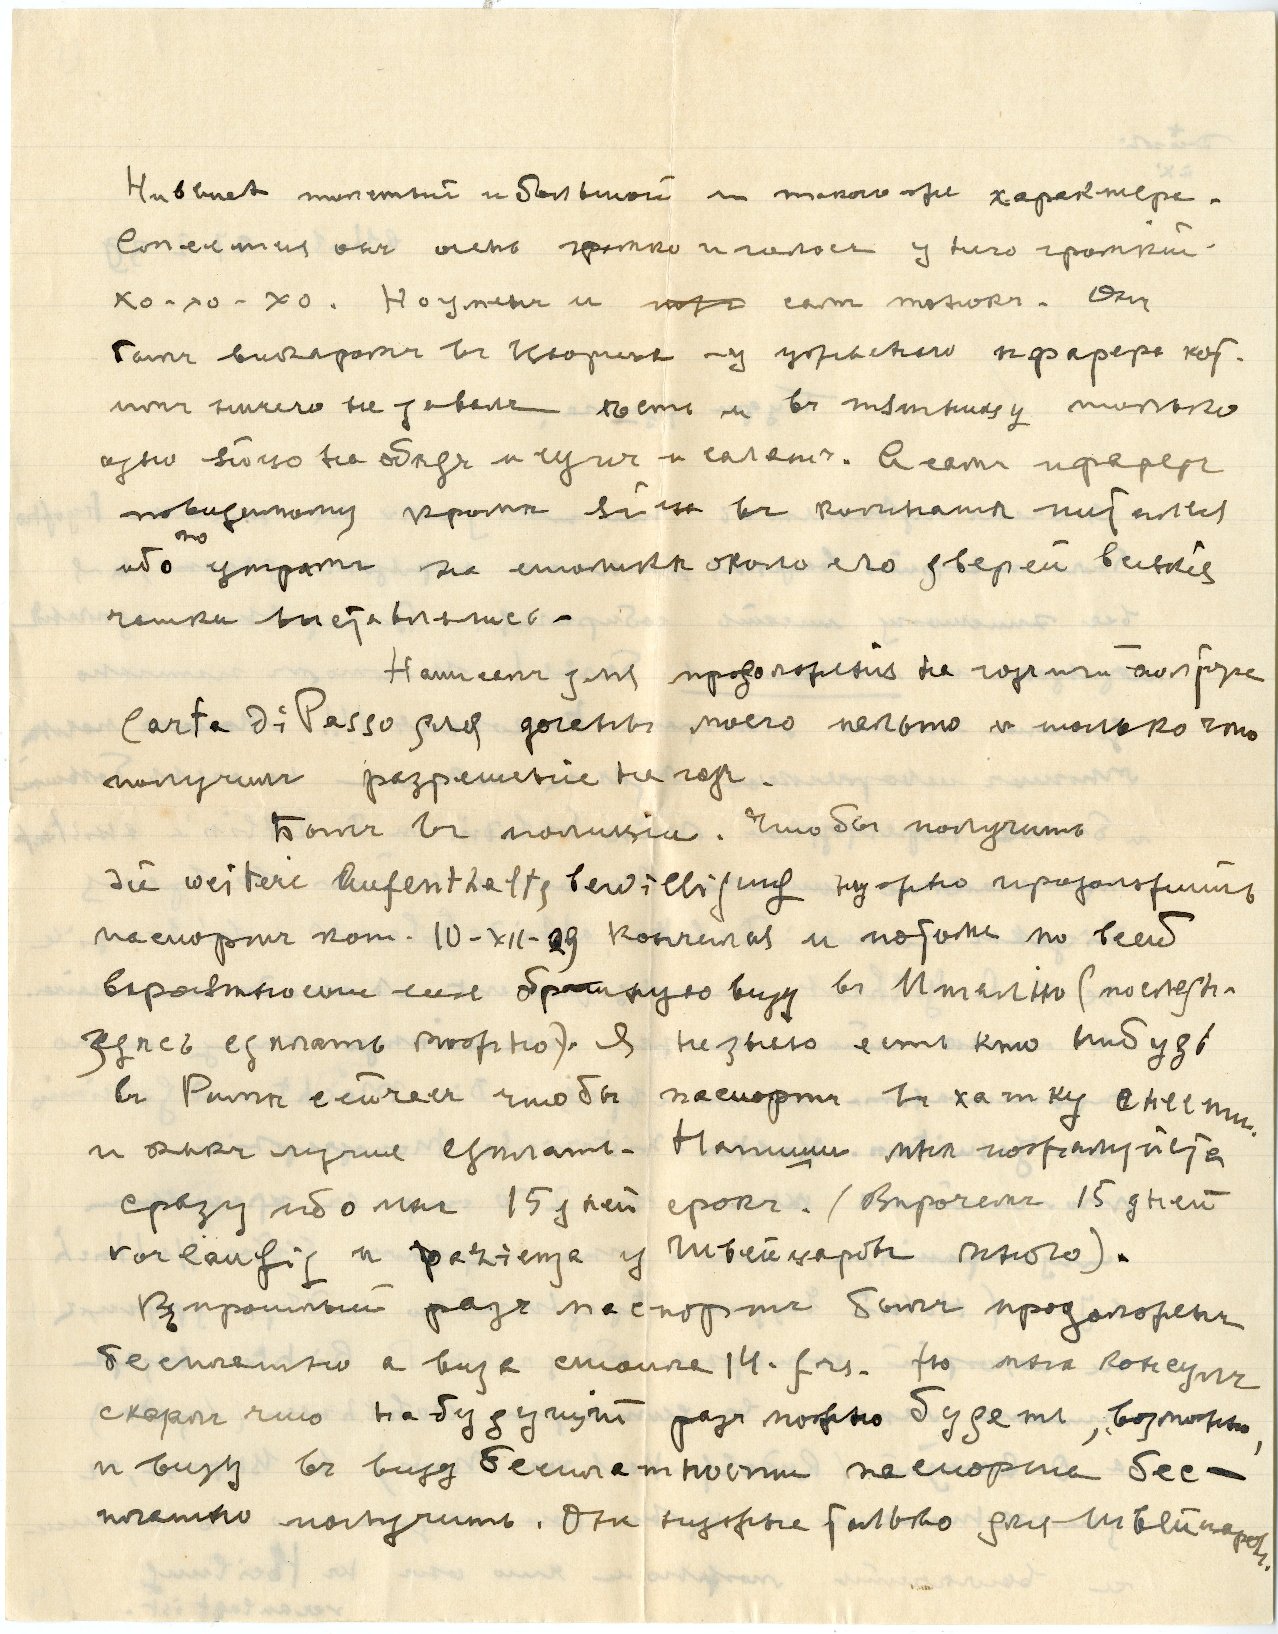 толстый и большой и такого же характера.
Смеется онъ очень громко и голосъ у него громкій
хо-хо-хо. Но уменъ и самъ тонокъ. Онъ
былъ викаромъ въ Цюрихѣ у ужаснаго пфарера кот.
имъ ничего не давалъ ѣсть и въ пятницу только
одно яйцо на обѣдъ и супъ и салатъ. А самъ пфареръ
повидимому кромѣ яйца въ комнатѣ питался
ибо по утрамъ на столикѣ около его дверей всякія
чашки выставлялись.
Написалъ для продолженія на годъ
Carta di Passo для доганы моего пальто и только что
получилъ разрешеніе на годъ.
Былъ въ полиціи. Чтобы получить
die weitere Aufenthaltsbewilligung нужно продолжить
паспортъ кот. 10-XII-29 кончился и потомъ по всей
вѣроятности еще обратную визу въ Италію (послѣдн.
здѣсь сдѣлать можно). Я не знаю есть кто нибудь
въ Римѣ сейчасъ чтобы паспортъ въ хатку снести
и какъ лучше сдѣлать. Напиши мнѣ пожалуйста
сразу ибо мнѣ 15 дней срокъ. (Впрочемъ 15 дней
vorläufig и pazienza у Швейцаровъ много).
Въ прошлый разъ паспортъ былъ продолженъ
бесплатно а виза стоила 14. frs. Но мнѣ консулъ
сказалъ что на будущій разъ можно будетъ, возможно,
и визу въ виду бесплатности паспорта бес-
платно получить. Онѣ нужны только для Швейцаровъ.